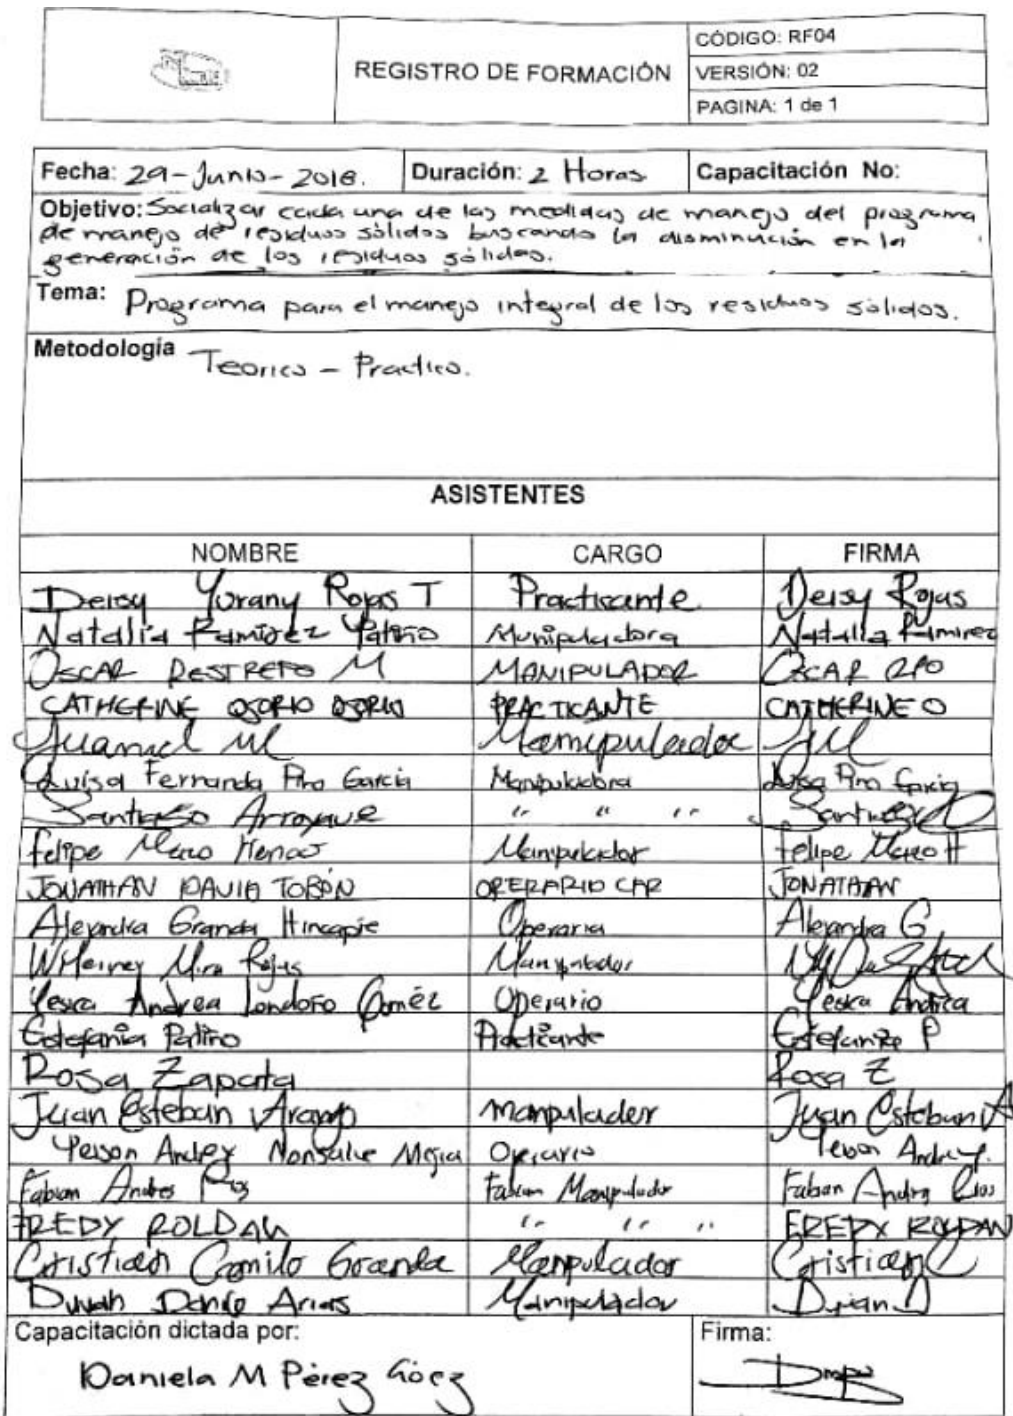 REGISTRO DE FORMACIÓN
CÓDIGO: RF04
VERSIÓN: 02
PAGINA: 1 de 1
Fecha: 29-Junio-2018. Duración: 2 Horas Capacitación No:
Objetivo: Socializar cada una de las medidas de manejo del programa
de manejo de residuos sólidos buscando la disminución en la
generación de los residuos sólidos.
Tema: Programa para el manejo integral de los residuos sólidos.
Metodología Teorico - Practico.
ASISTENTES
NOMBRE CARGO FIRMA
Deisy Yurany Rojas T Practicante Deisy Rojas
Natalia Ramirez Patiño Manipuladora Natalia Ramirez
OSCAR RESTREPO M MANIPULADOR OSCAR RPO
CATHERINE OSORIO OSORIO PRACTICANTE CATHERINE O
Manipulador
Luisa Fernanda Pino Garcia Manipuladora Luisa Pino Garcia
Santiago Arroyave " " " Santiago
Felipe Henao Manipulador Felipe
JONATHAN DAVID TOBÓN OPERARIO CAR JONATHAN
Alejandra Granda Hincapie Operaria Alejandra G
Mira Rojas Manipulador
Yesica Andrea Londoño Goméz Operario Yesica Andrea
Estefania Patiño Practicante Estefania P
Rosa Zapata Rosa Z
Juan Esteban Arango Manipulador Juan Esteban A
Yeison Andrey Monsalve Mejia Operario Yeison Andrey
Fabian Andres Rios Fabian Manipulador Fabian Andres Rios
FREDY ROLDAN " " " FREDY ROLDAN
Cristian Camilo Granda Manipulador Cristian C
Arias Manipulador
Capacitación dictada por: Firma:
Daniela M Pérez Góez